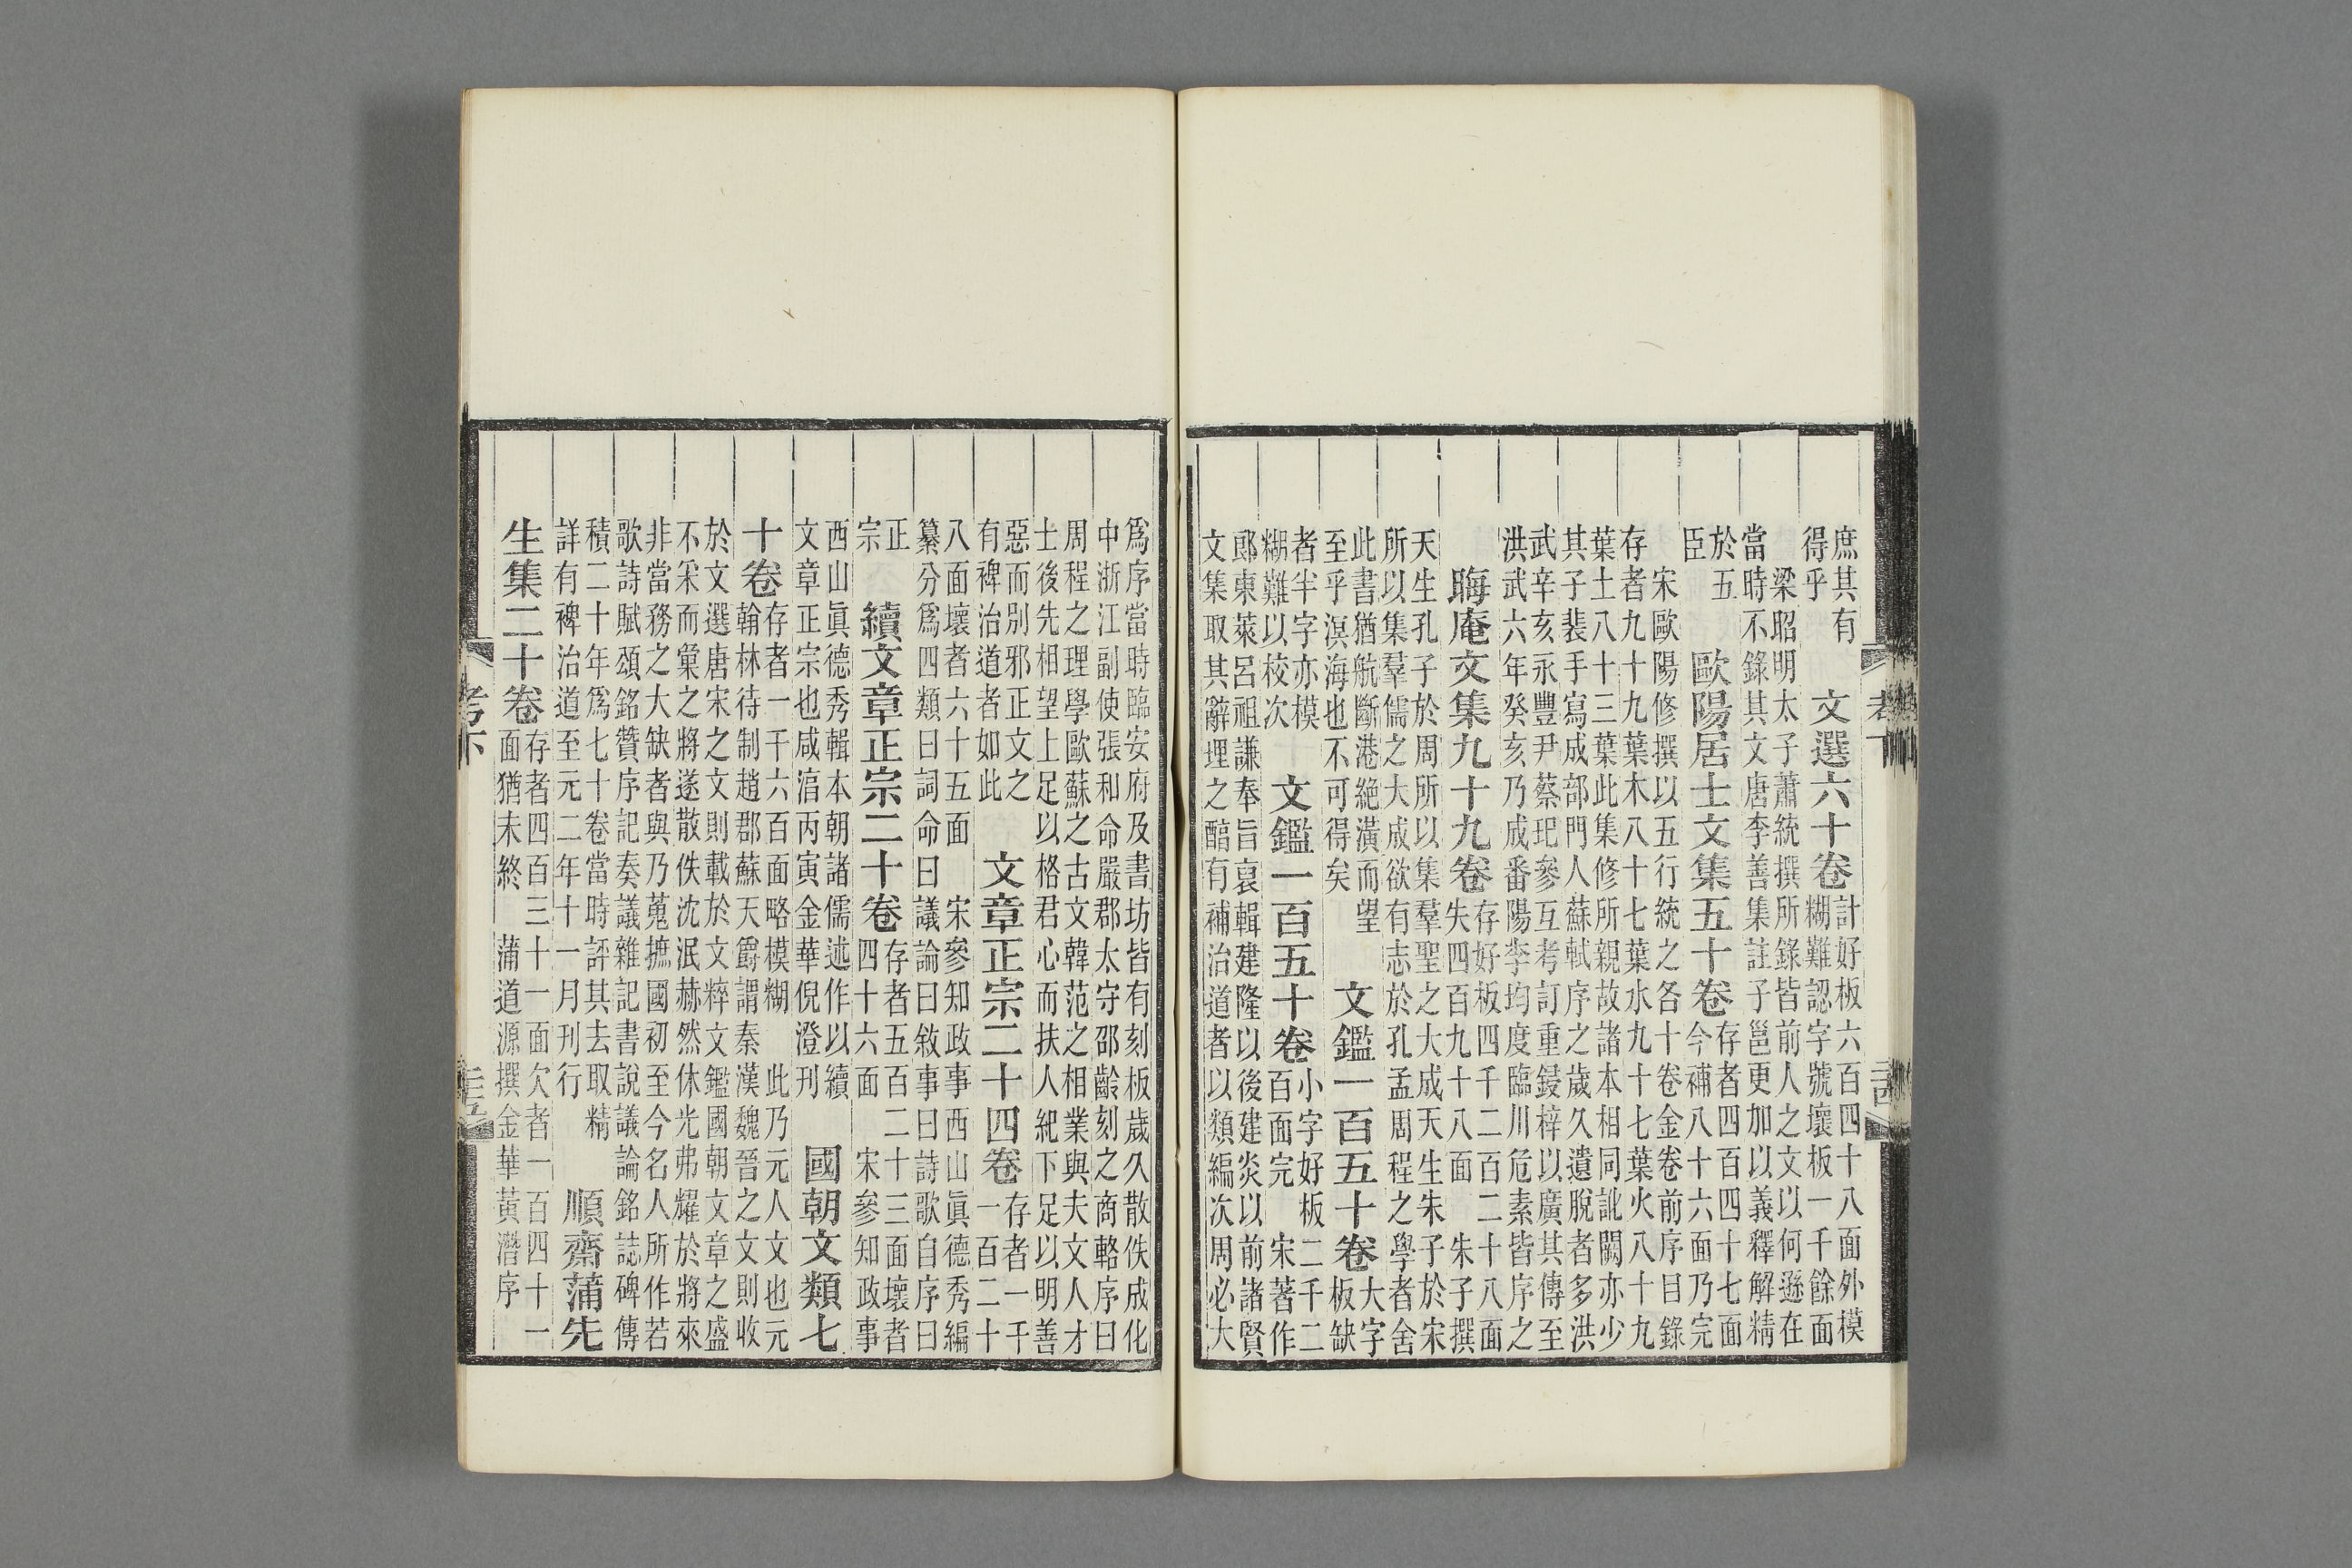 庶其有
得乎
文選六十卷
計好板六百四十八面外模
糊難認字號壞板一千餘面
梁昭明太子蕭統撰所錄皆前人之文以何遜在
當時不錄其文唐李善集註子邕更加以義釋解精
於五
臣
歐陽居士文集五十卷
存者四百四十七面
今補八十六面乃完
宋歐陽修撰以五行統之各十卷金卷前序目錄
存者九十九葉木八十七葉水九十七葉火八十九
葉土八十三葉此集修所親故諸本相同訛闕亦少
其子裴手寫成部門人蘇軾序之歲久遺脫者多洪
武辛亥永豐尹蔡玘參互考訂重鋟梓以廣其傳至
洪武六年癸亥乃成番陽李均度臨川危素皆序之
晦庵文集九十九卷
存好板四千二百二十八面
失四百九十八面　朱子撰
天生孔子於周所以集羣聖之大成天生朱子於宋
所以集羣儒之大成欲有志於孔孟周程之學者舍
此書猶航斷港絕潢而望
至乎溟海也不可得矣
文鑑一百五十卷
大字
板缺
者半字亦模
糊難以校次
文鑑一百五十卷
小字好板二千二
百面完　宋著作
郎東萊呂祖謙奉旨裒輯建隆以後建炎以前諸賢
文集取其辭理之醕有補治道者以類編次周必大
爲序當時臨安府及書坊皆有刻板歲久散佚成化
中浙江副使張和命嚴郡太守邵齡刻之商輅序曰
周程之理學歐蘇之古文韓范之相業與夫文人才
士後先相望上足以格君心而扶人紀下足以明善
惡而別邪正文之
有裨治道者如此
文章正宗二十四卷
存者一千
一百二十
八面壞者六十五面　宋參知政事西山眞德秀編
纂分爲四類曰詞命曰議論曰敘事曰詩歌自序曰
正
宗
續文章正宗二十卷
存者五百二十三面壞者
四十六面　宋參知政事
西山眞德秀輯本朝諸儒述作以續
文章正宗也咸淳丙寅金華倪澄刊
國朝文類七
十卷
存者一千六百面略模糊　此乃元人文也元
翰林待制趙郡蘇天爵謂秦漢魏晉之文則收
於文選唐宋之文則載於文粹文鑑國朝文章之盛
不采而彙之將遂散佚沈泯赫然休光弗耀於將來
非當務之大缺者與乃蒐摭國初至今名人所作若
歌詩賦頌銘贊序記奏議雜記書說議論銘誌碑傳
積二十年爲七十卷當時評其去取精
詳有裨治道至元二年十一月刊行
順齋蒲先
生集二十卷
存者四百三十一面欠者一百四十一
面猶未終　蒲道源撰金華黃潛序
考下